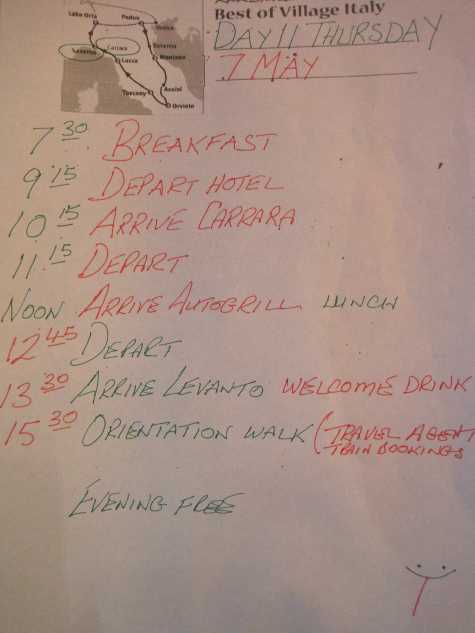 Best of Village Italy
DAY 11 THURSDAY
7 MAY
Lake Orta
Padua
Venice
Levanto
Carrara
Ravenna
Lucca
Montone
Assisi
Tuscany
Orvieto
7 30 BREAKFAST
9 15 DEPART HOTEL
10 15 ARRIVE CARRARA
11 15 DEPART
NOON ARRIVE AUTOGRILL LUNCH
12 45 DEPART
13 30 ARRIVE LEVANTO WELCOME DRINK
15 30 ORIENTATION WALK (TRAVEL AGENT
TRAIN BOOKINGS
EVENING FREE